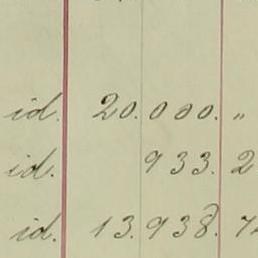 id. 20.000. "
id. 933. 2
id. 13.938.